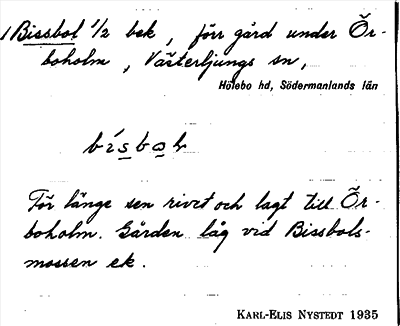 1 Bissbol 1/2 bek, förr gård under Ör-
boholm, Västerljungs sn,
Hölebo hd, Södermanlands län
För länge sen rivet och lagt till Ör-
boholm. Gården låg vid Bissbols-
mossen ek.
KARL-ELIS NYSTEDT 1935